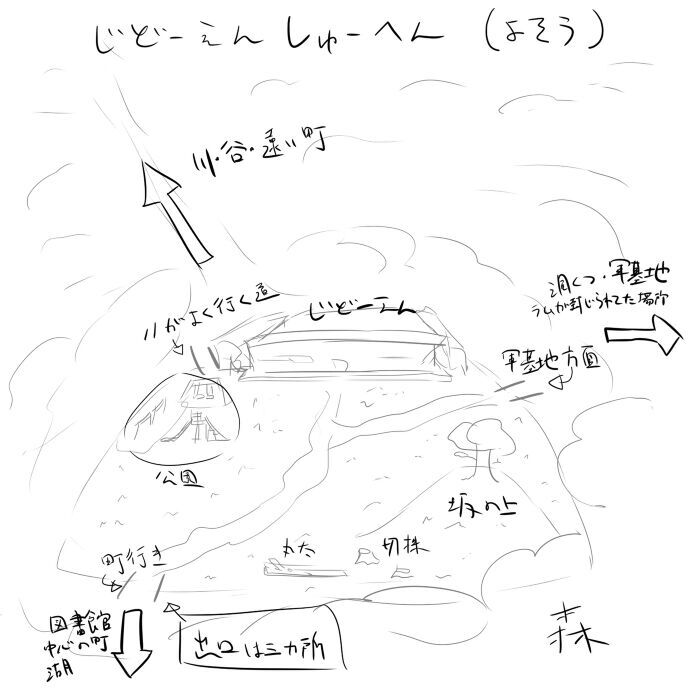 じどーえん しゅーへん (よそう)
川・谷・遠い町
洞くつ・軍基地
ラムが封じられてた場所
川がよく行く道
じどーえん
軍基地方面
公園
坂の上
丸太
切株
町行き
図書館
中心の町
湖
出口は三カ所
森